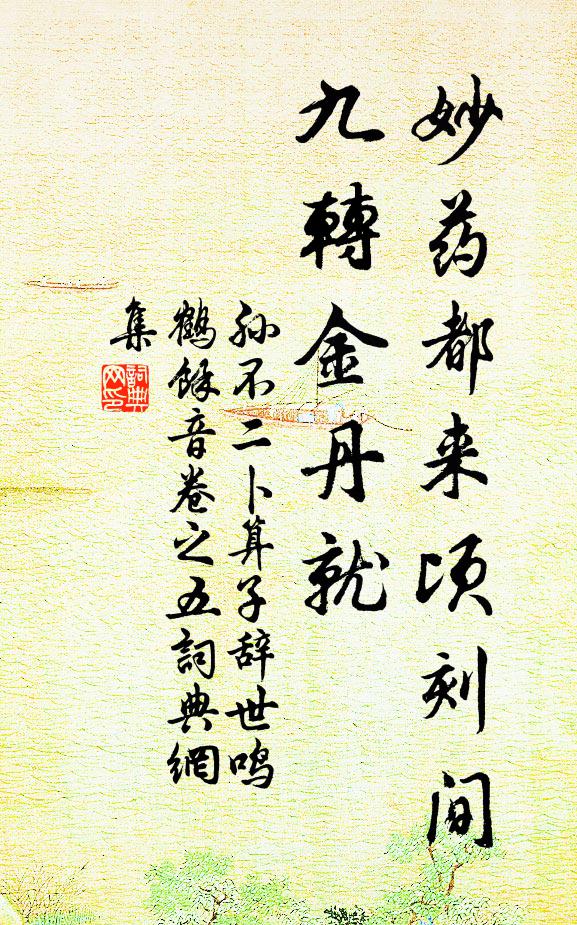 妙药都来顷刻间
九轉金丹就
孙不二卜算子辞世鸣
鶴餘音卷之五詞典網
集
詞典
网印